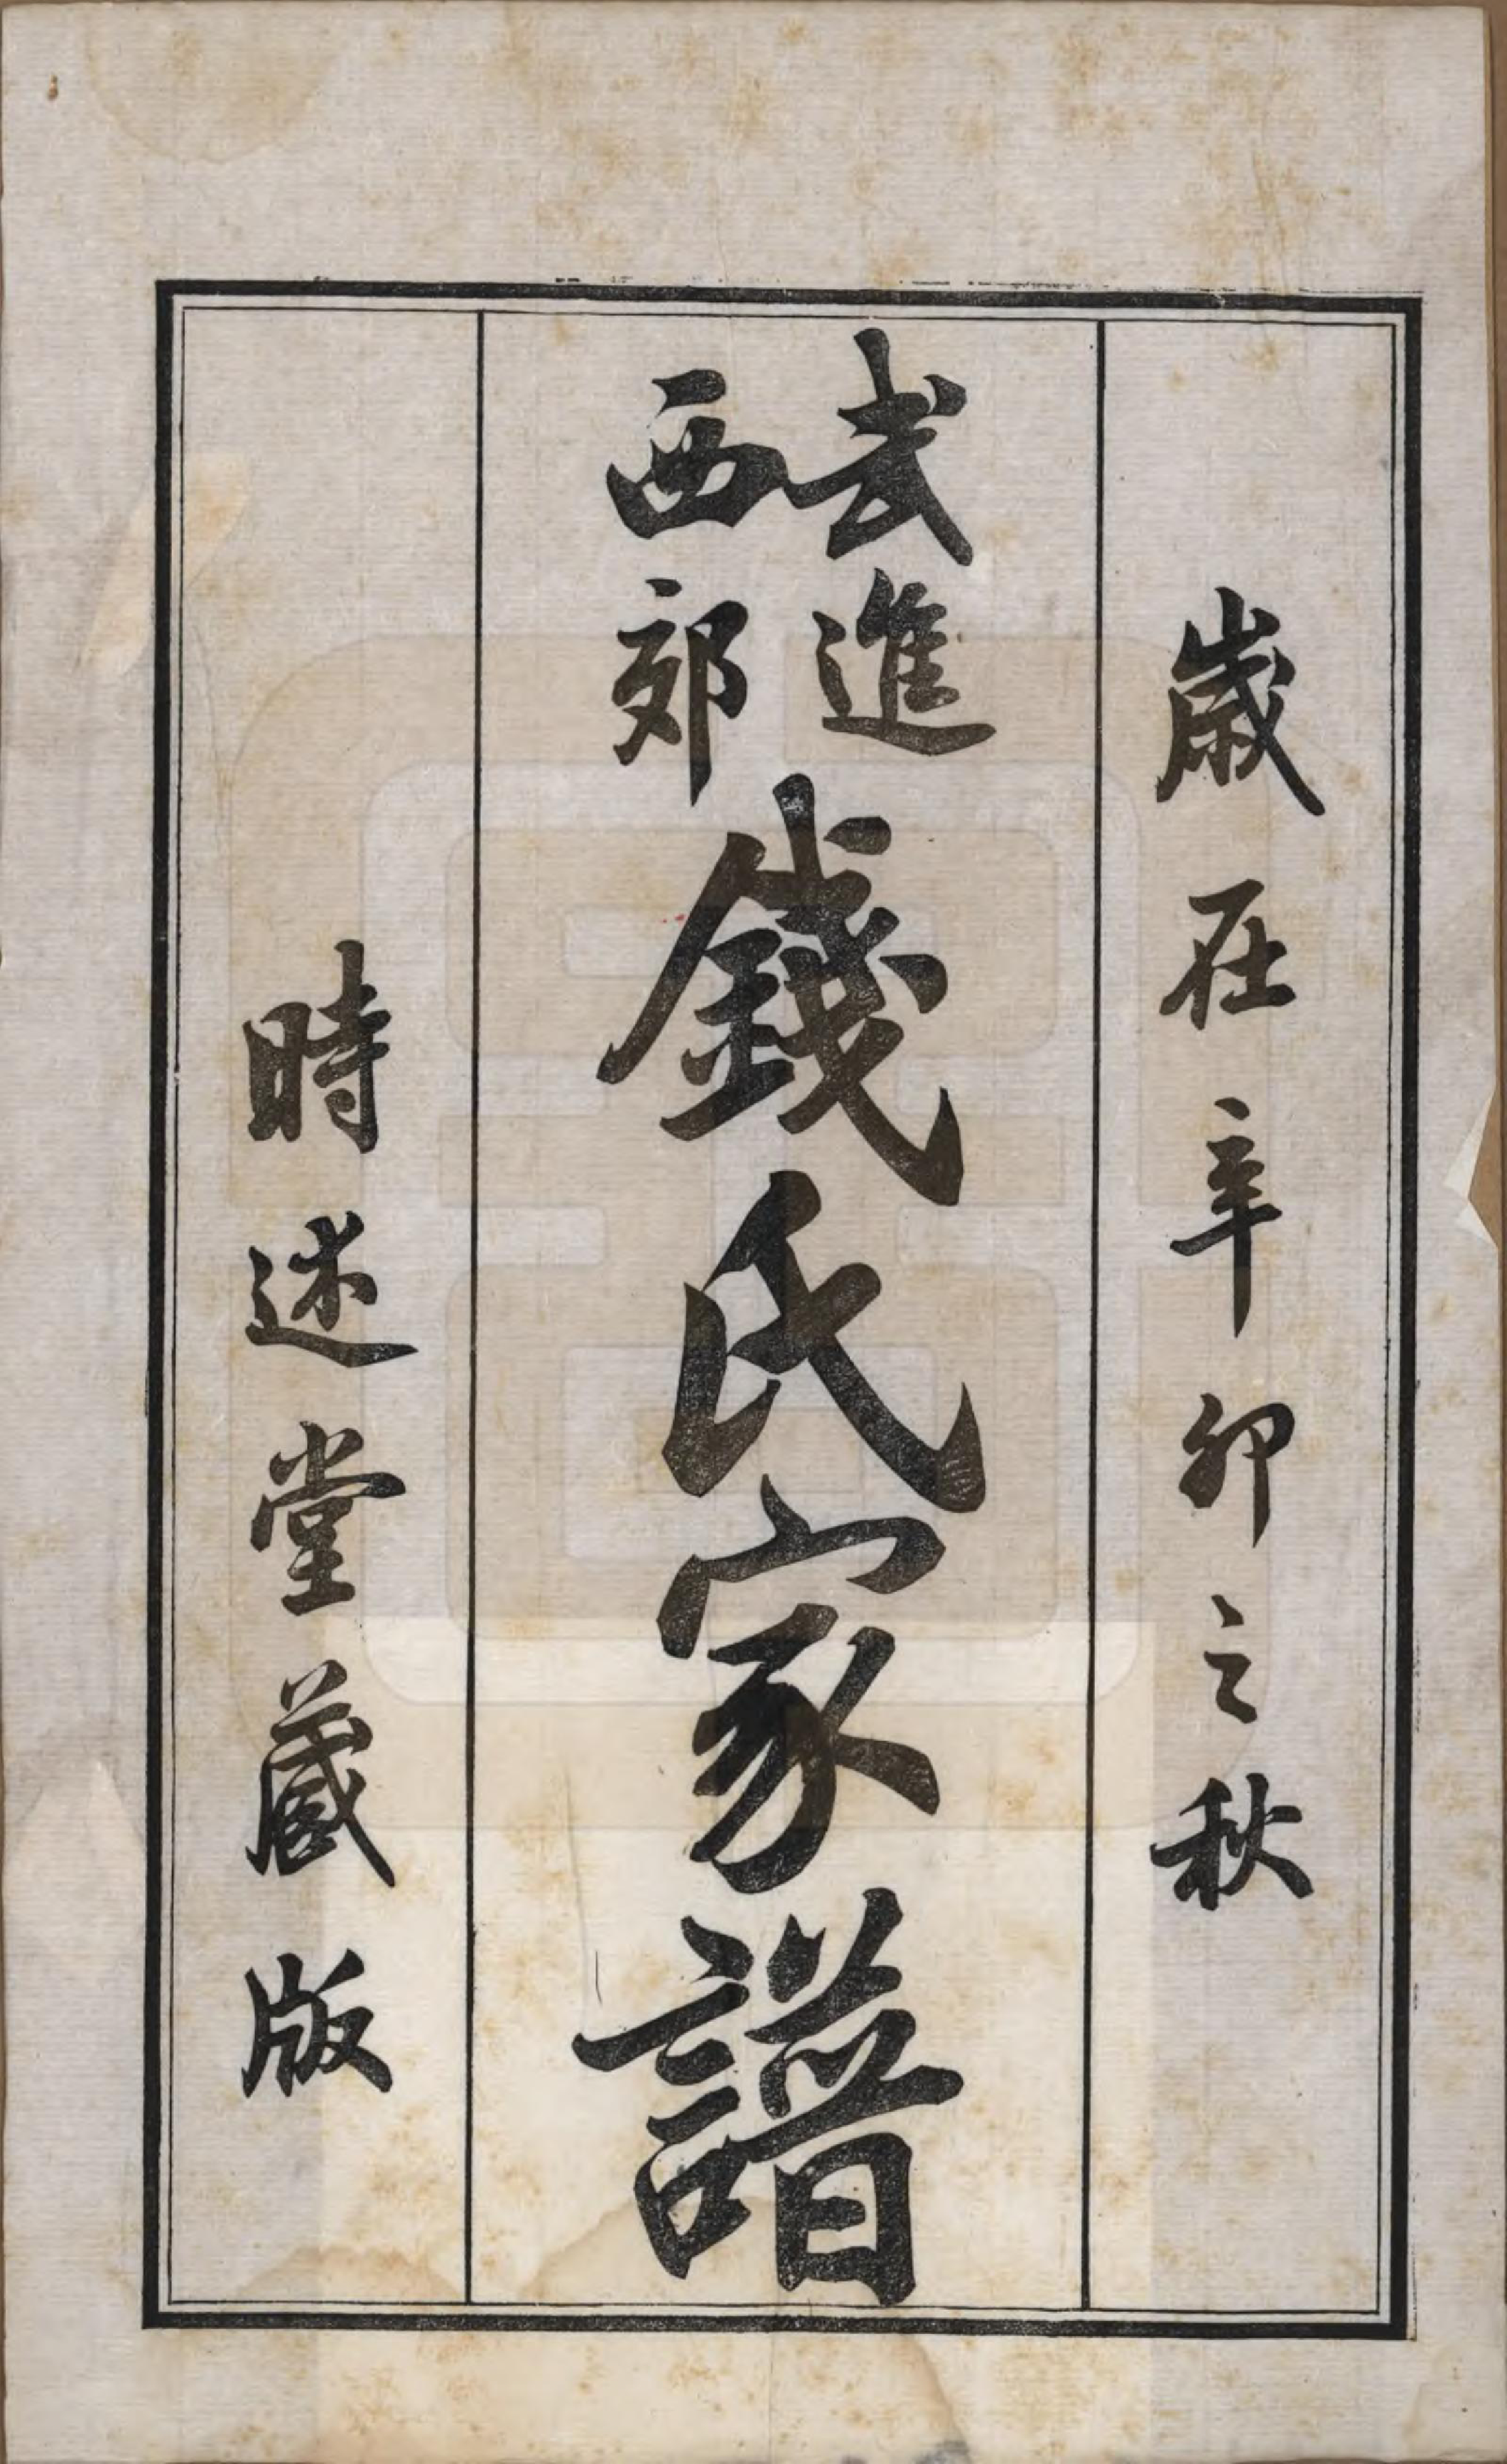 歲在辛卯之秋
武進西郊錢氏家譜
時述堂藏版